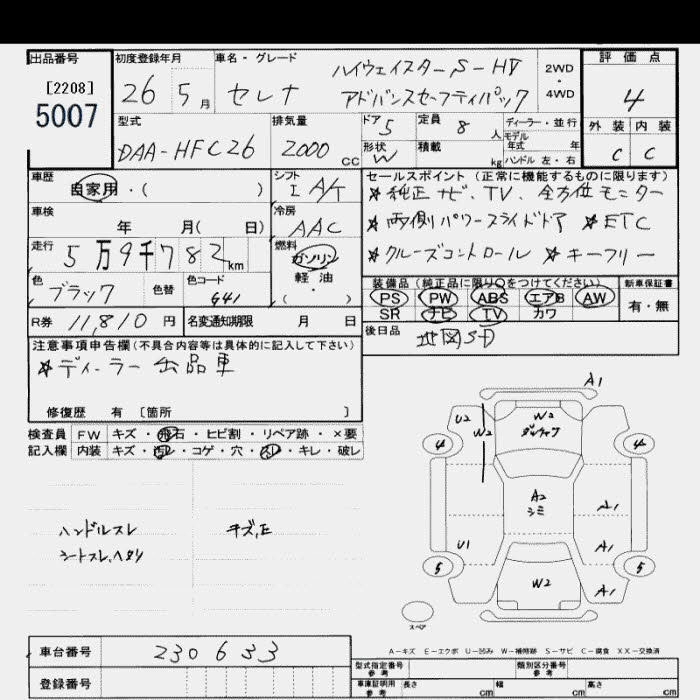 出品番号 初度登録年月 車名・グレード 評価点
[2208] 5007
26 5月 セレナ ハイウェイスターS-HV アドバンスセーフティパック 2WD・4WD 4
型式 排気量 ドア 5 定員 8人 ディーラー・並行 外装 内装
DAA-HFC26 2000CC 形状 W 積載 kg モデル年式 年 ハンドル 左・右 C C
車歴 自家用・( ) シフト I A/T セールスポイント(正常に機能するものに限ります)
*純正ナビ、TV、全方位モニター
車検 年 月( 日) 冷房 AAC *両側パワースライドドア *ETC
走行 5万9千782km 燃料 ガソリン 軽油・( ) *クルーズコントロール *キーフリー
色 ブラック 色替 色コード G41 装備品(純正品に限り○をつけてください) 新車保証書
PS PW ABS エアB AW 有・無
SR ナビ TV カワ
R券 11,810円 名変通知期限 月 日 後日品 地図SD
注意事項申告欄(不具合内容等は具体的に記入して下さい)
*ディーラー出品車
修復歴 有 [箇所 ]
検査員 FW キズ・飛石・ヒビ割・リペア跡・×要
記入欄 内装 キズ・汚レ・コゲ・穴・スレ・キレ・破レ
ハンドルスレ キズ,E
シートスレ,ヘタリ
A1
U2 W2 W2
4 4
A2 シミ A1
U1 A1
5 5
W2 A1
スペア
A-キズ E-エクボ U-凹み W-補修跡 S-サビ C-腐食 XX-交換済
車台番号 230633
登録番号
型式指定番号 参考 類別区分番号 参考
車庫証明用 参考 長さ cm 幅 cm 高さ cm